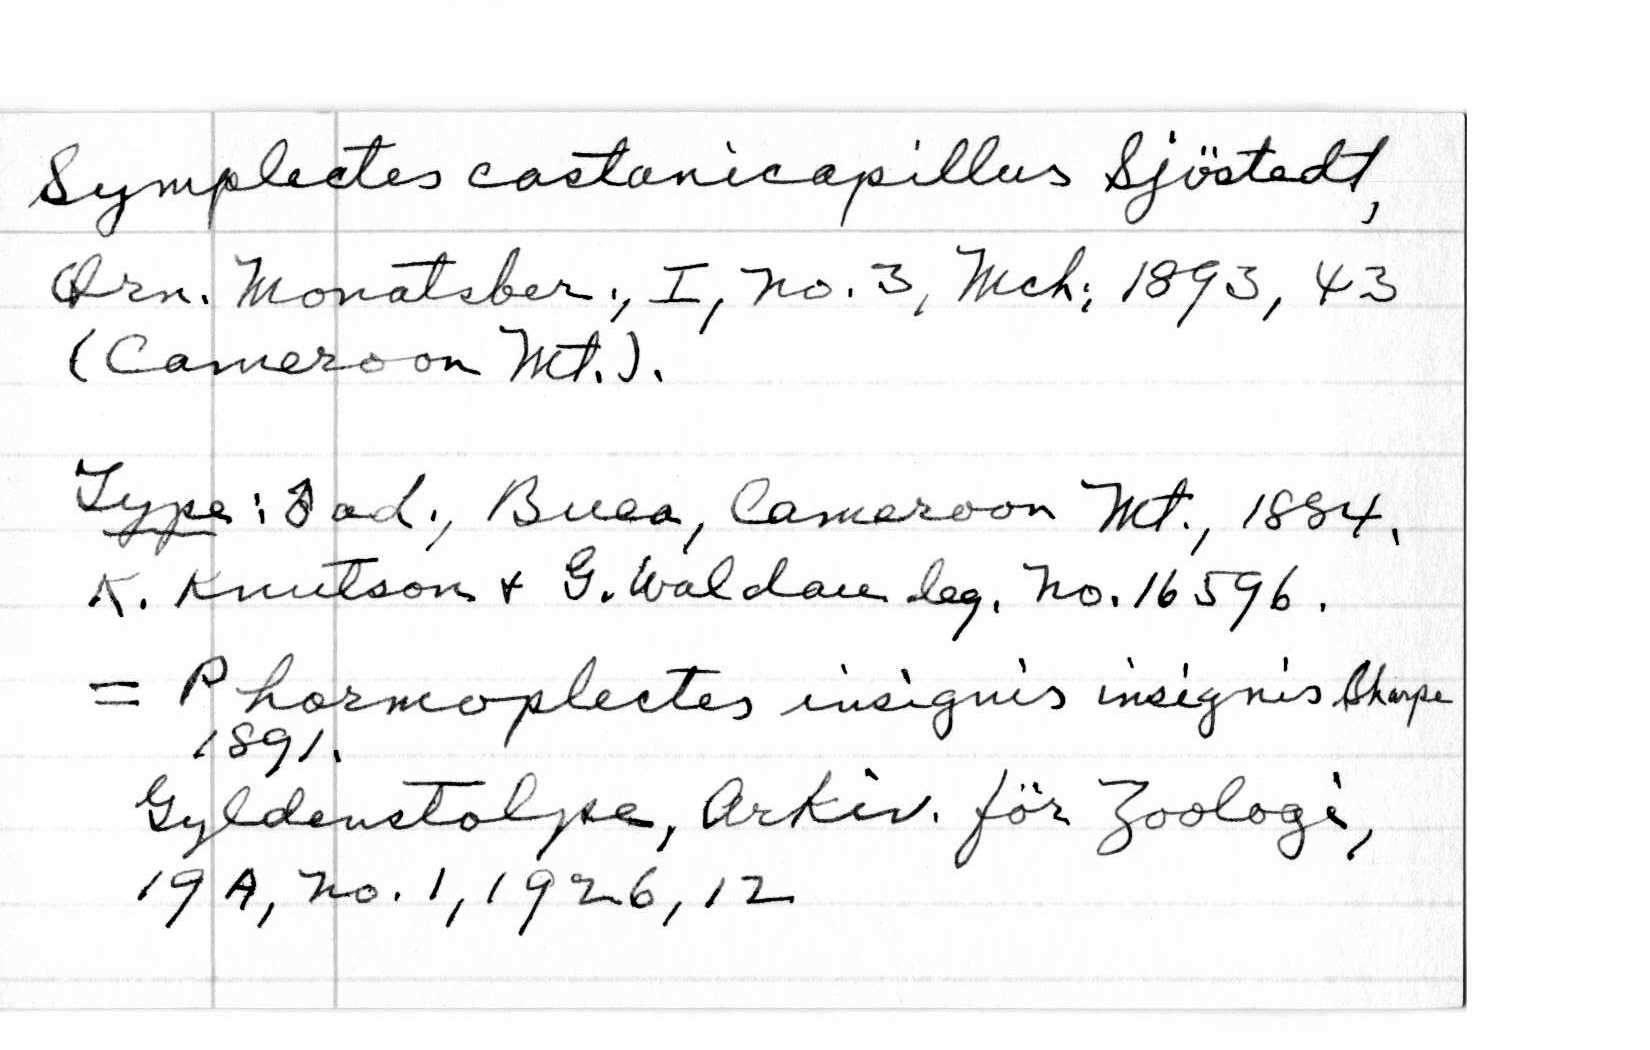 Symplectes castanicapillus Sjöstedt,
Orn. Monatsber., I, no. 3, Mch., 1893, 43
(Cameroon Mt.).
Type: ♂ ad., Buea, Cameroon Mt., 1884.
K. Knutson & G. Waldau leg. no. 16596.
= Phormoplectes insignis insignis Sharpe
1891.
Gyldenstolpe, Arkiv. för Zoologi,
19A, no. 1, 1926, 12